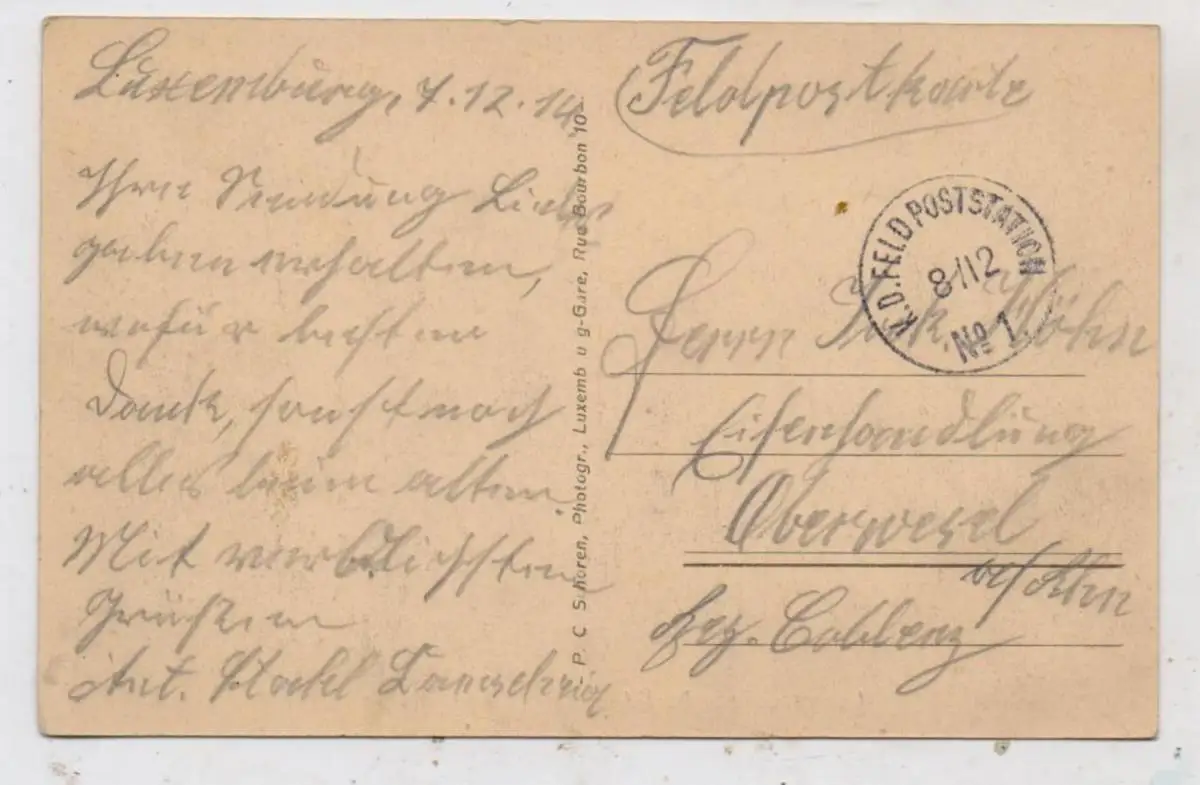 Luxemburg, 7.12.14.
Ihre Sendung Liebes
gaben erhalten,
wofür besten
Dank, sonst noch
alles beim alten.
Mit verbdlichsten
Grüßen
Ant. Stahl
P. C. Schoren, Photogr., Luxemb u g-Gare, Rue Bourbon 10
Feldpostkarte
K.D. FELDPOSTSTATION
8/12
No 1.
Herrn
Eisenhandlung
Oberwesel
a/Rhn
Bez. Coblenz